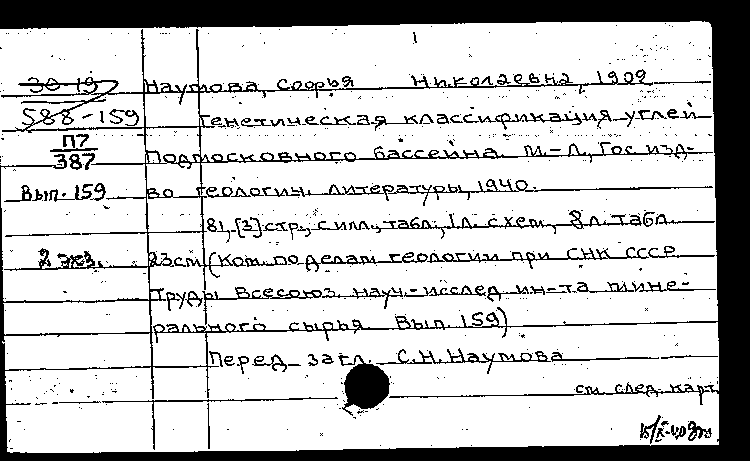 1
30-19 Наумова, Софья Николаевна, 1909
588-159 Генетическая классификация углей
П7
387 Подмосковного бассейна. М.-Л., Гос изд-
Вып. 159 во геологич. литературы, 1940.
81, [3] стр., с илл., табл., 1 л. схем, 8 л. табл.
2 экз. 23 см (Ком. по делам геологии при СНК СССР
Труды Всесоюз. науч.-исслед ин-та мине-
рального сырья. Вып. 159)
Перед загл. С.Н. Наумова
см. след. карт.